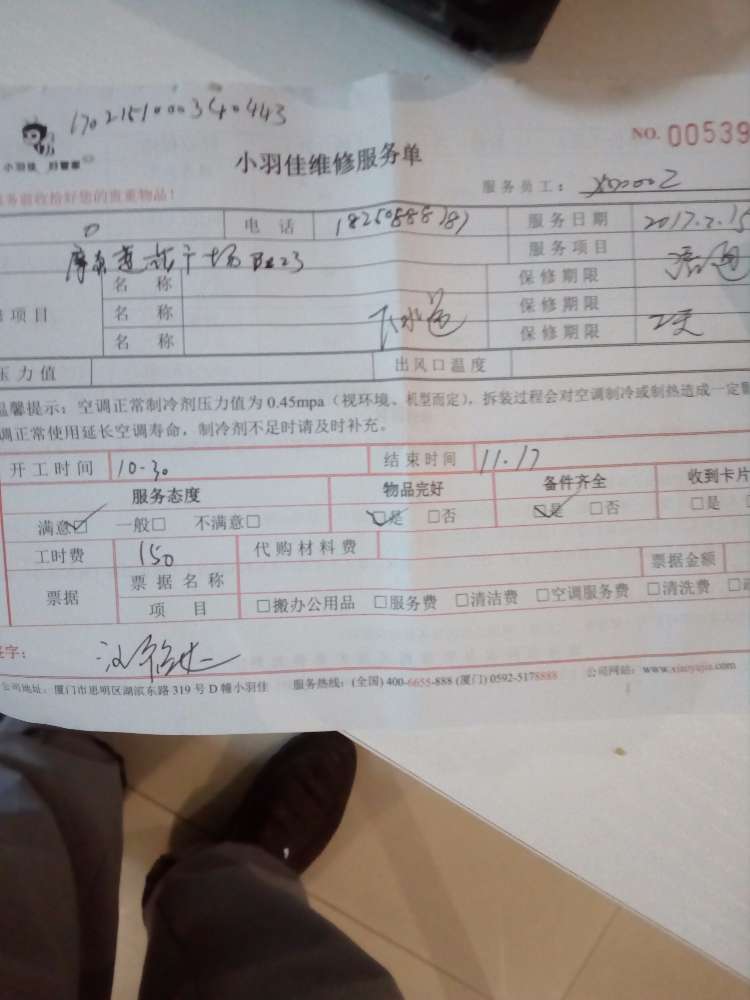 小羽佳 好管家
NO. 00539
小羽佳维修服务单
服务前收拾好您的贵重物品!
服务员工:
电 话 服务日期 2017.2.15
服务项目
广场
名 称 保修期限
项目 名 称 下水 保修期限
名 称 保修期限 2天
压力值 出风口温度
温馨提示:空调正常制冷剂压力值为0.45mpa(视环境、机型而定),拆装过程会对空调制冷或制热造成一定
调正常使用延长空调寿命,制冷剂不足时请及时补充。
开工时间 10-30 结束时间 11.17
服务态度 物品完好 备件齐全 收到卡片
满意☑ 一般□ 不满意□ ☑是 □否 ☑是 □否 □是
工时费 150 代购材料费
票据 票据名称 票据金额
项 目 □搬办公用品 □服务费 □清洁费 □空调服务费 □清洗费
签字:
公司地址:厦门市思明区湖滨东路319号D幢小羽佳 服务热线:(全国)400-6655-888 (厦门)0592-5178888 公司网站:www.xiaoyujia.com